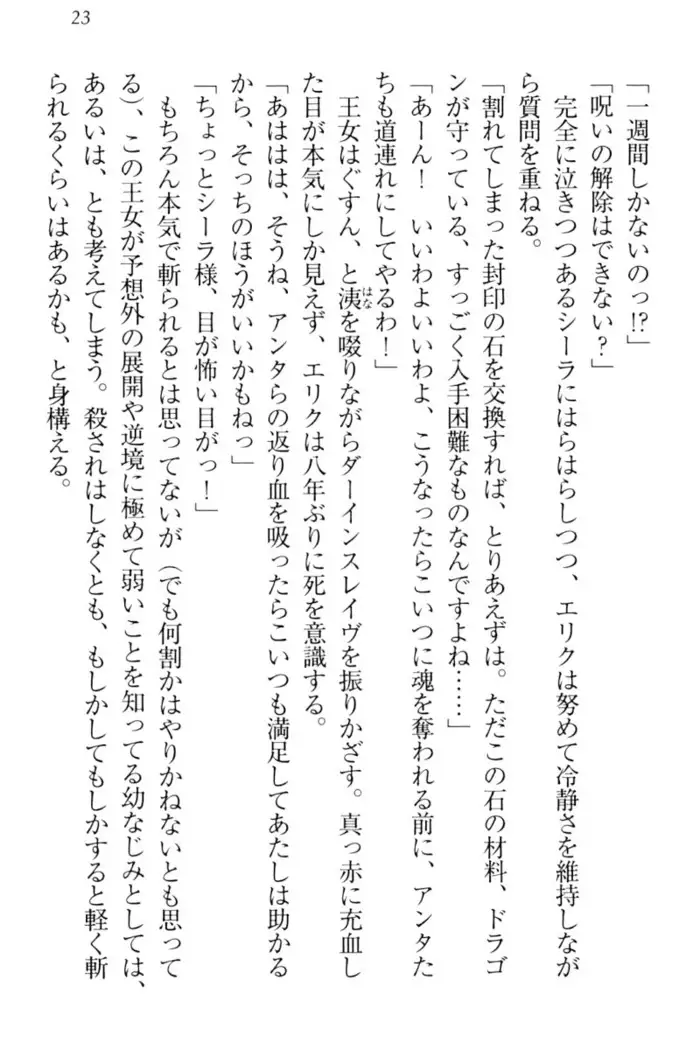 23
「一週間しかないのっ!?」
「呪いの解除はできない？」
　完全に泣きつつあるシーラにはらはらしつつ、エリクは努めて冷静さを維持しなが
ら質問を重ねる。
「割れてしまった封印の石を交換すれば、とりあえずは。ただこの石の材料、ドラゴ
ンが守っている、すっごく入手困難なものなんですよね……」
「あーん！　いいわよいいわよ、こうなったらこいつに魂を奪われる前に、アンタた
ちも道連れにしてやるわ！」
　王女はぐすん、と洟はなを啜りながらダーインスレイヴを振りかざす。真っ赤に充血し
た目が本気にしか見えず、エリクは八年ぶりに死を意識する。
「あははは、そうね、アンタらの返り血を吸ったらこいつも満足してあたしは助かる
から、そっちのほうがいいかもねっ」
「ちょっとシーラ様、目が怖い目がっ！」
　もちろん本気で斬られるとは思ってないが（でも何割かはやりかねないとも思って
る）、この王女が予想外の展開や逆境に極めて弱いことを知ってる幼なじみとしては、
あるいは、とも考えてしまう。殺されはしなくとも、もしかしてもしかすると軽く斬
られるくらいはあるかも、と身構える。